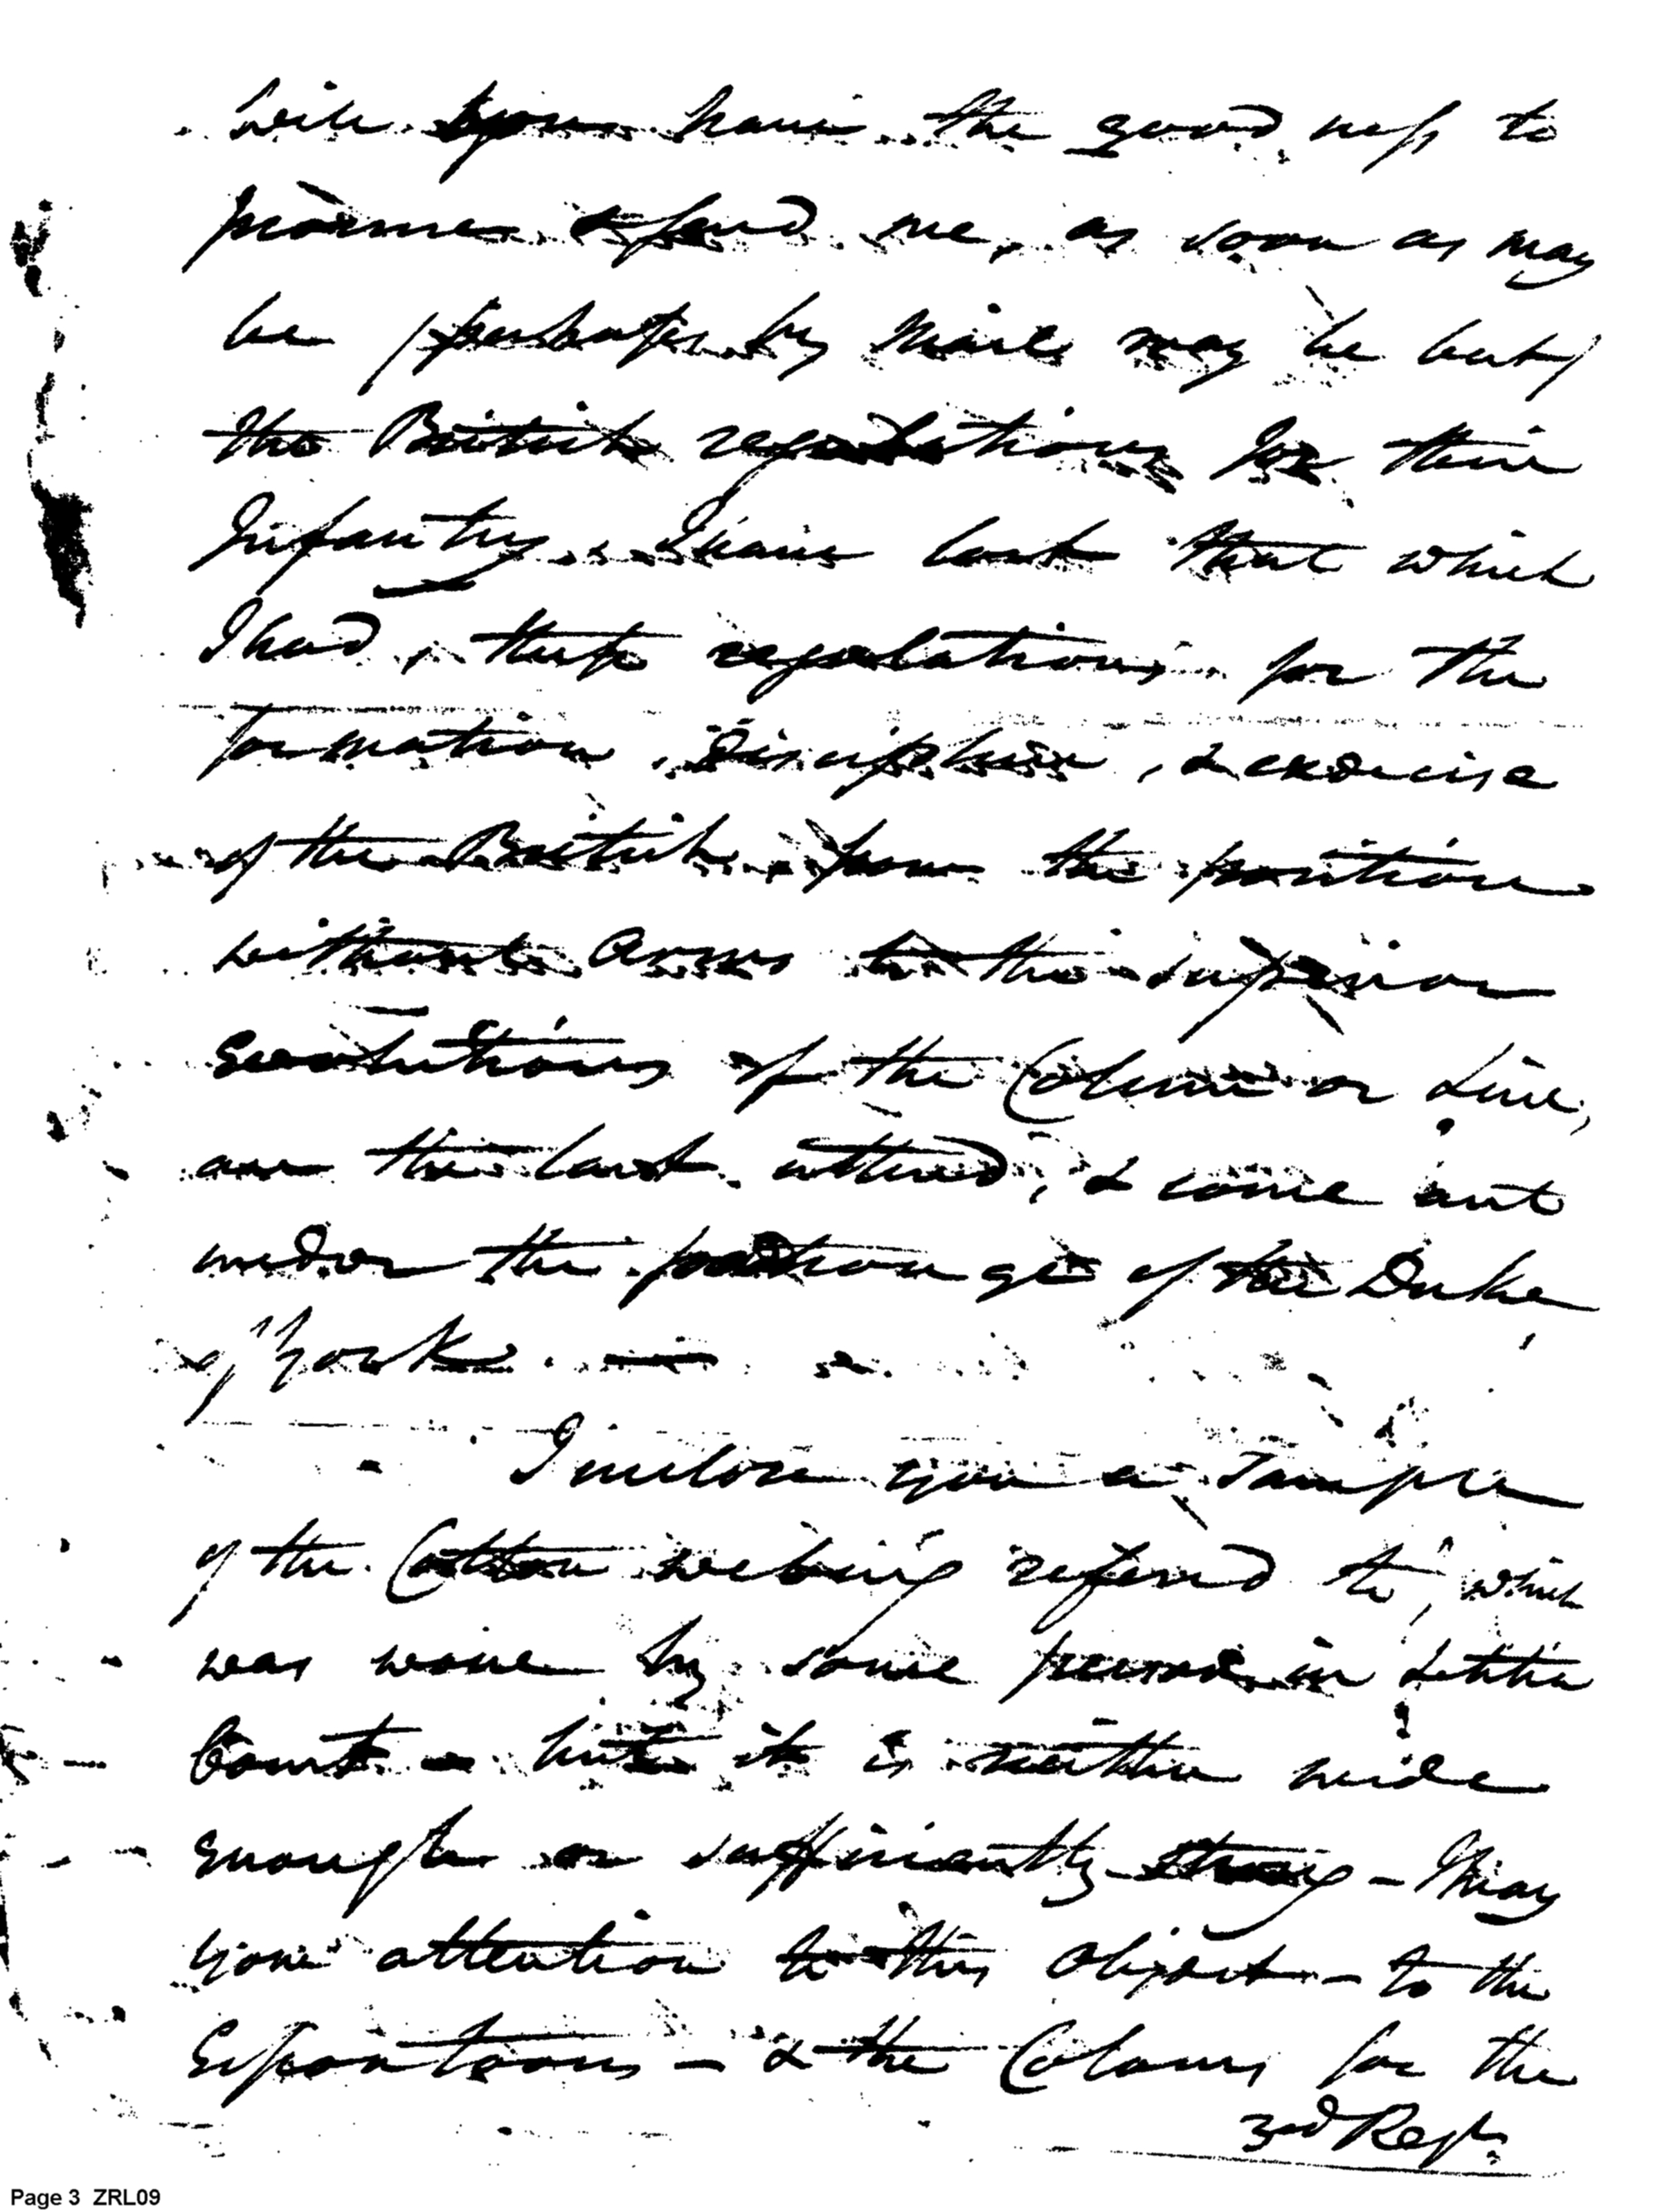 Will you have the good ness to
procure & send me, as soon as may
be / perhaps by Mail may be best /
the British regulations for their
Infantry. I have lost that which
I had, these regulations for the
formation, Discipline, & exercise
of the British from the position
without Arms to the superior
Evolutions of the Column or Line,
are the last, & come out
under the patronage of the Duke
of York. —
I inclose you a Sample
of the Cotton webing referred to, which
was wove by some person in Letitia
Court - but it is neither wide
enough or sufficiently strong - I pray
your attention to this object - to the
Espontoons - & the Colours for the
3rd Regt.
Page 3 ZRL09